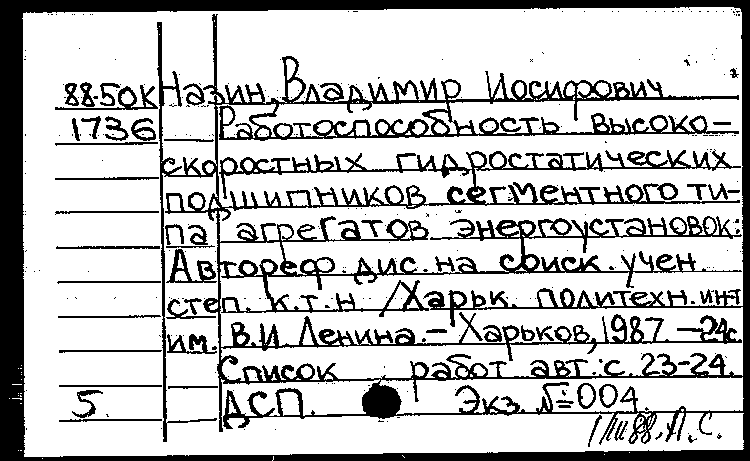 88-50к Назин, Владимир Иосифович
1736 Работоспособность высоко-
скоростных гидростатических
подшипников сегментного ти-
па агрегатов энергоустановок:
Автореф. дис. на соиск. учен.
степ. к.т.н. /Харьк. политехн. инт
им. В.И. Ленина. – Харьков, 1987. – 24с.
Список работ авт.: с. 23-24.
5. ДСП. Экз. №004.
88. Л.С.